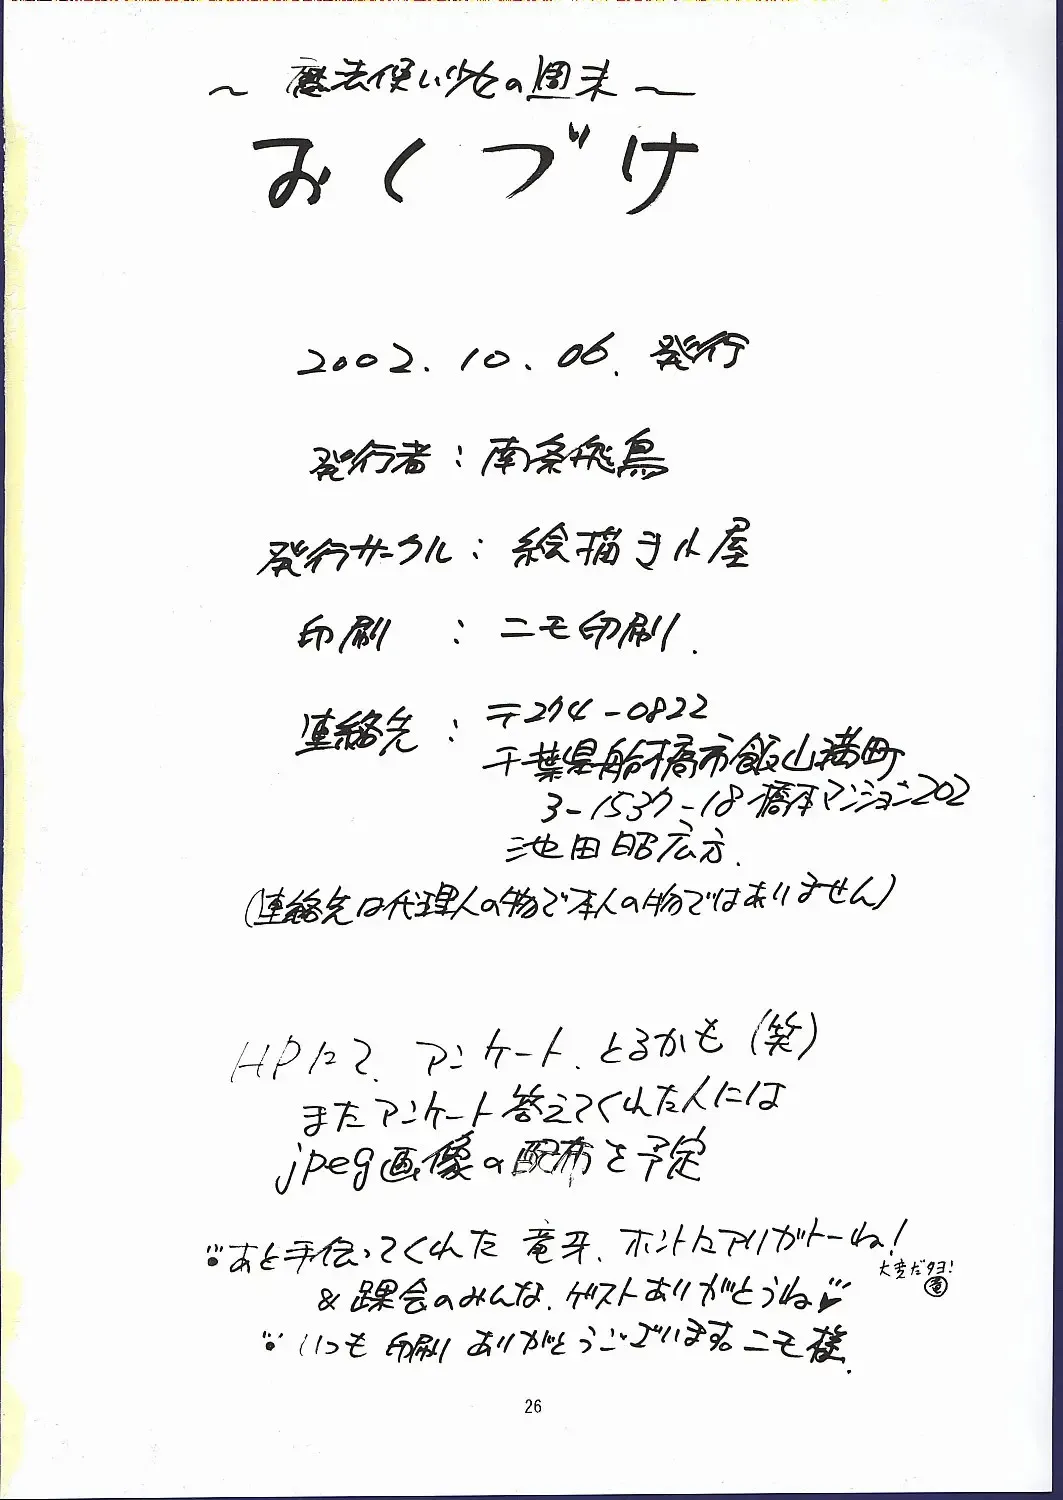 ～魔法使い少女の週末～
おくづけ
2002.10.06.発行
発行者：南条飛鳥
発行サークル：絵描き小屋
印刷：ニモ印刷.
連絡先：〒274-0822
千葉県船橋市飯山満町
3-1537-18橋本マンション202
池田昭広方.
(連絡先は代理人の物で本人の物ではありません)
HPにて、アンケート、とるかも(笑)
またアンケート答えてくれた人には
jpeg画像の配布を予定
あと手伝ってくれた竜牙、ホントにアリガトーね!
大変だタヨ! 竜
&課会のみんな、ゲストありがとうね♥
いつも印刷ありがとうございます。ニモ様.
26